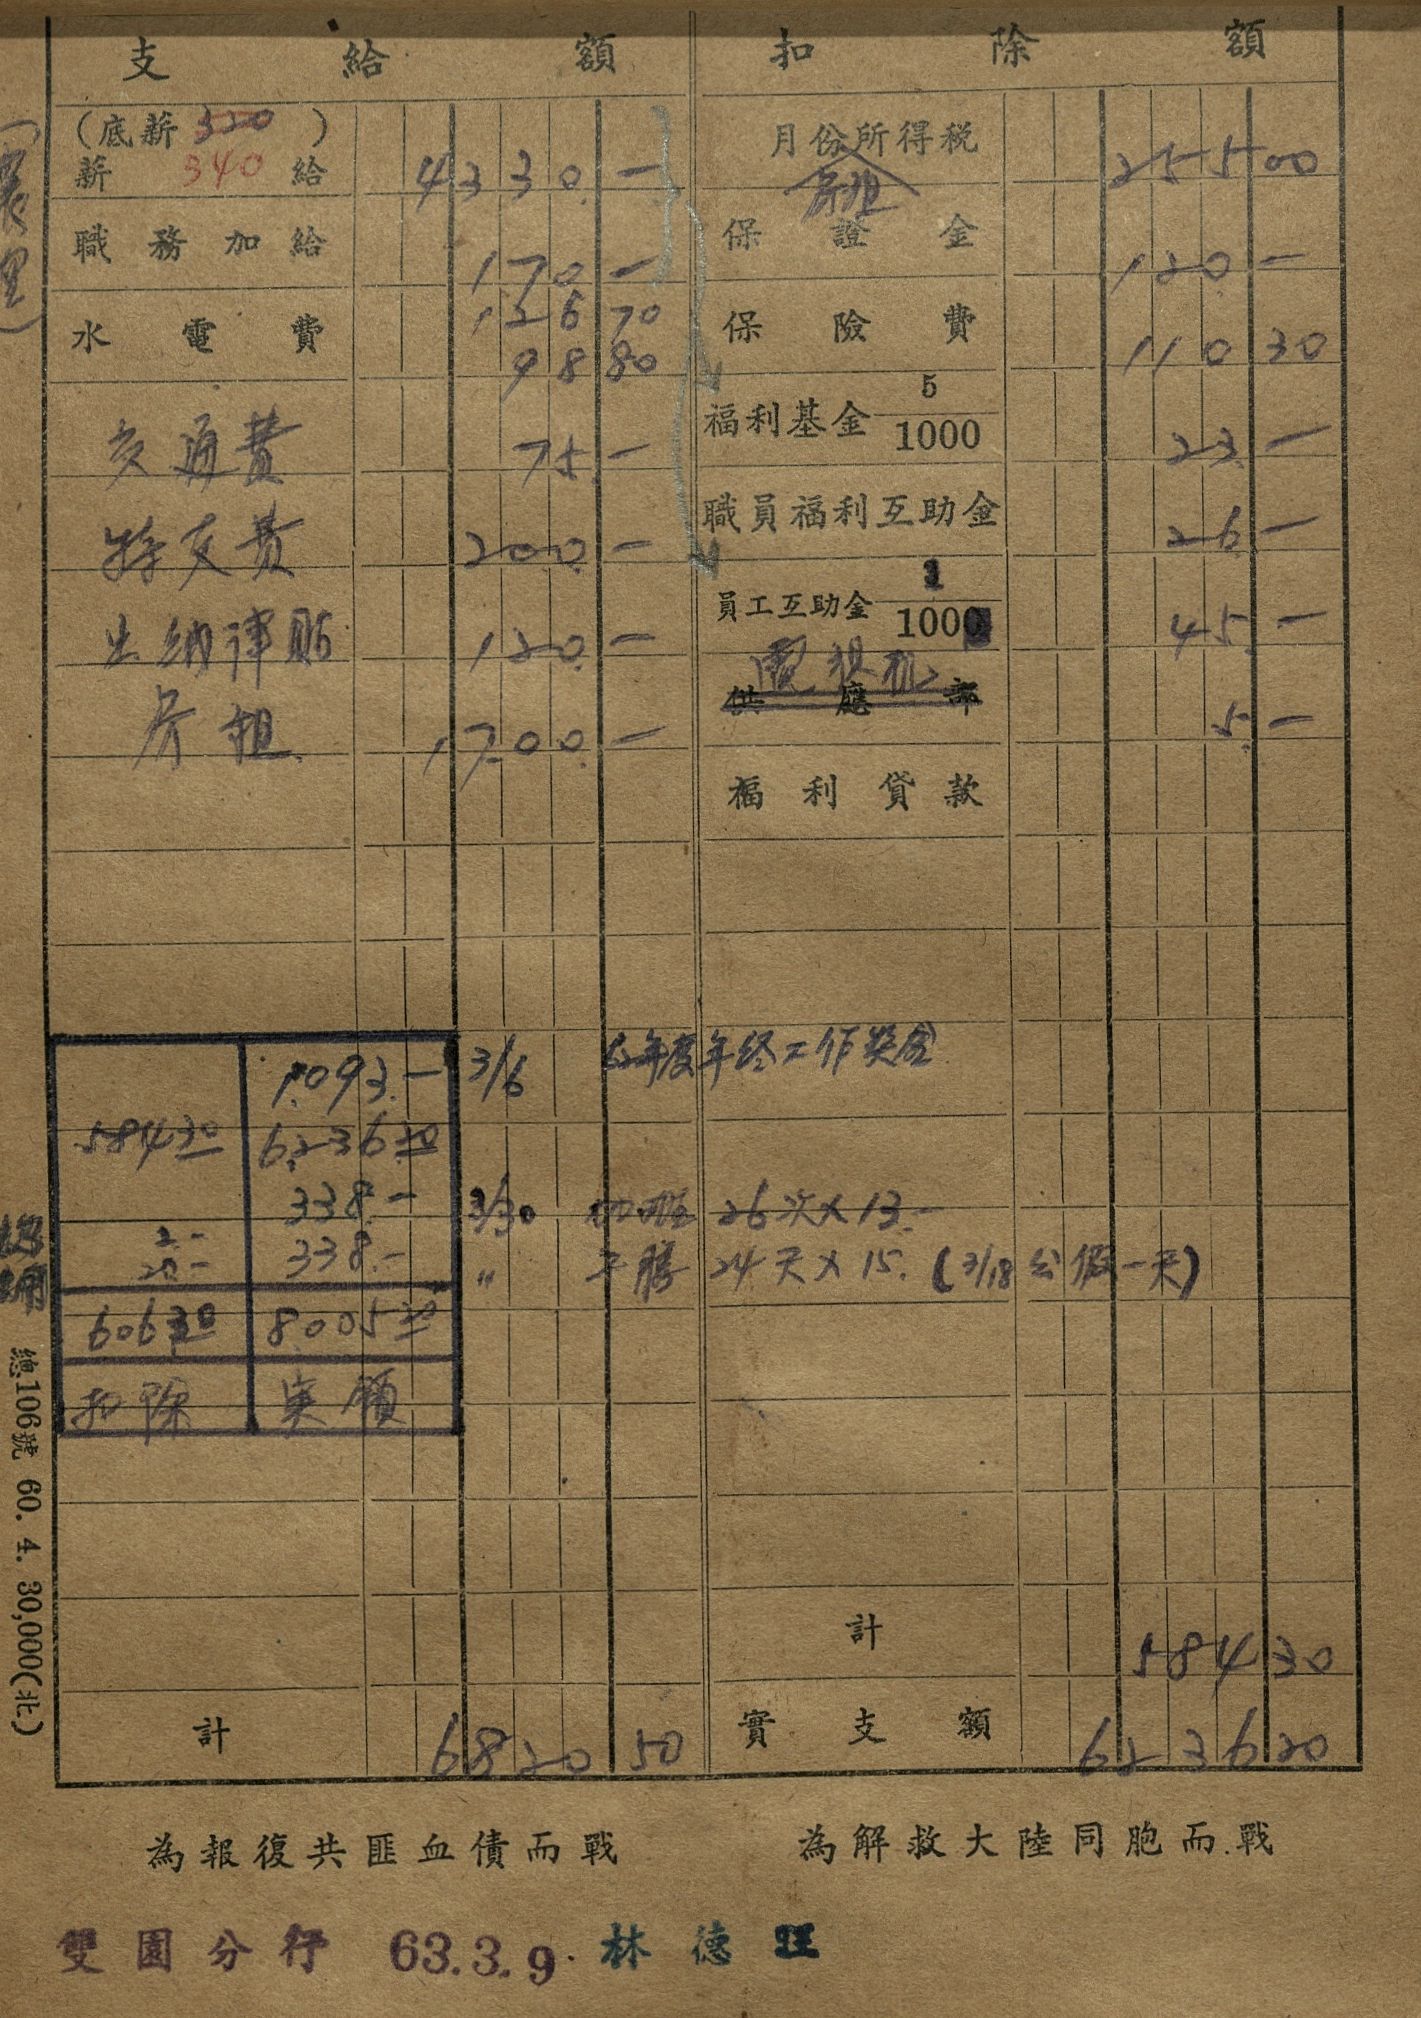 支給額 扣除額
(底薪 320 )
薪 340 給 4330.—
月份所得稅 255 00
職務加給 170 —
房租
保證金 120 —
水電費 126 70
98 80
保險費 110 30
交通費 75.—
福利基金 5/1000 23.—
特支費 200.—
職員福利互助金 26.—
出納津貼 120.—
員工互助金 1/1000 45.—
房租 1700.—
電視機
供應部 5.—
福利貸款
1,093.— 3/6 62年度年終工作獎金
584 30 6,236.20
338.— 3/30 26次×13.—
2.—
20.— 338.— " 24天×15. (3/18公假一天)
606 30 8,005 20
扣除 実領
計 584 30
計 6820 50
實支額 6236 20
為報復共匪血債而戰 為解救大陸同胞而戰
雙園分行 63.3.9. 林德旺
總106號 60. 4. 30,000(北)